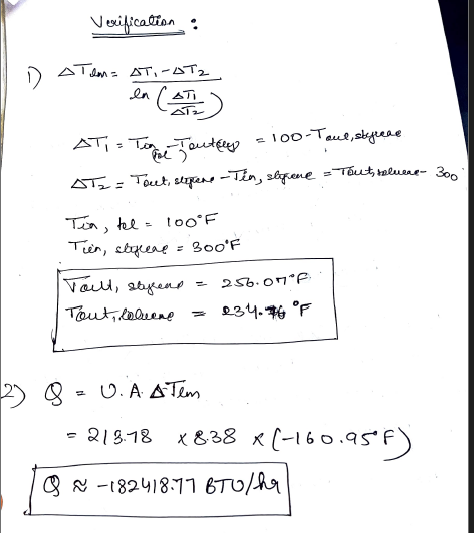 Verification :
1) ΔTlm = ΔT1 - ΔT2
ln (ΔT1
ΔT2)
ΔT1 = Tin, tol - Tout, = 100 - Tout, styrene
ΔT2 = Tout, styrene - Tin, styrene = Tout, toluene - 300
Tin, tol = 100°F
Tin, styrene = 300°F
Tout, styrene = 256.07°F
Tout, toluene = 234. °F
2) Q = U.A. ΔTlm
= 213.78 x 8.38 x (-160.95°F)
Q ≈ -182418.77 BTU/hr